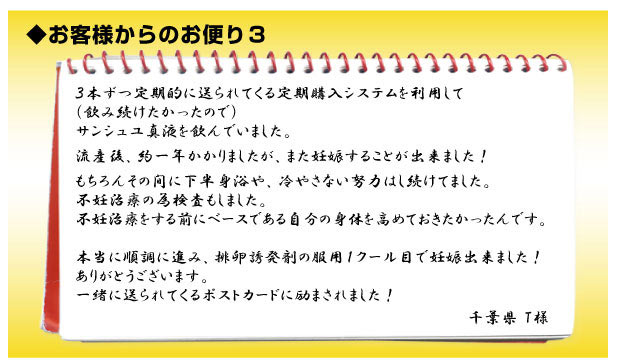 ◆お客様からのお便り３
３本ずつ定期的に送られてくる定期購入システムを利用して
（飲み続けたかったので）
サンシュユ真液を飲んでいました。
流産後、約一年かかりましたが、また妊娠することが出来ました！
もちろんその間に下半身浴や、冷やさない努力はし続けてました。
不妊治療の為検査もしました。
不妊治療をする前にベースである自分の身体を高めておきたかったんです。
本当に順調に進み、排卵誘発剤の服用１クール目で妊娠出来ました！
ありがとうございます。
一緒に送られてくるポストカードに励まされました！
千葉県 T様